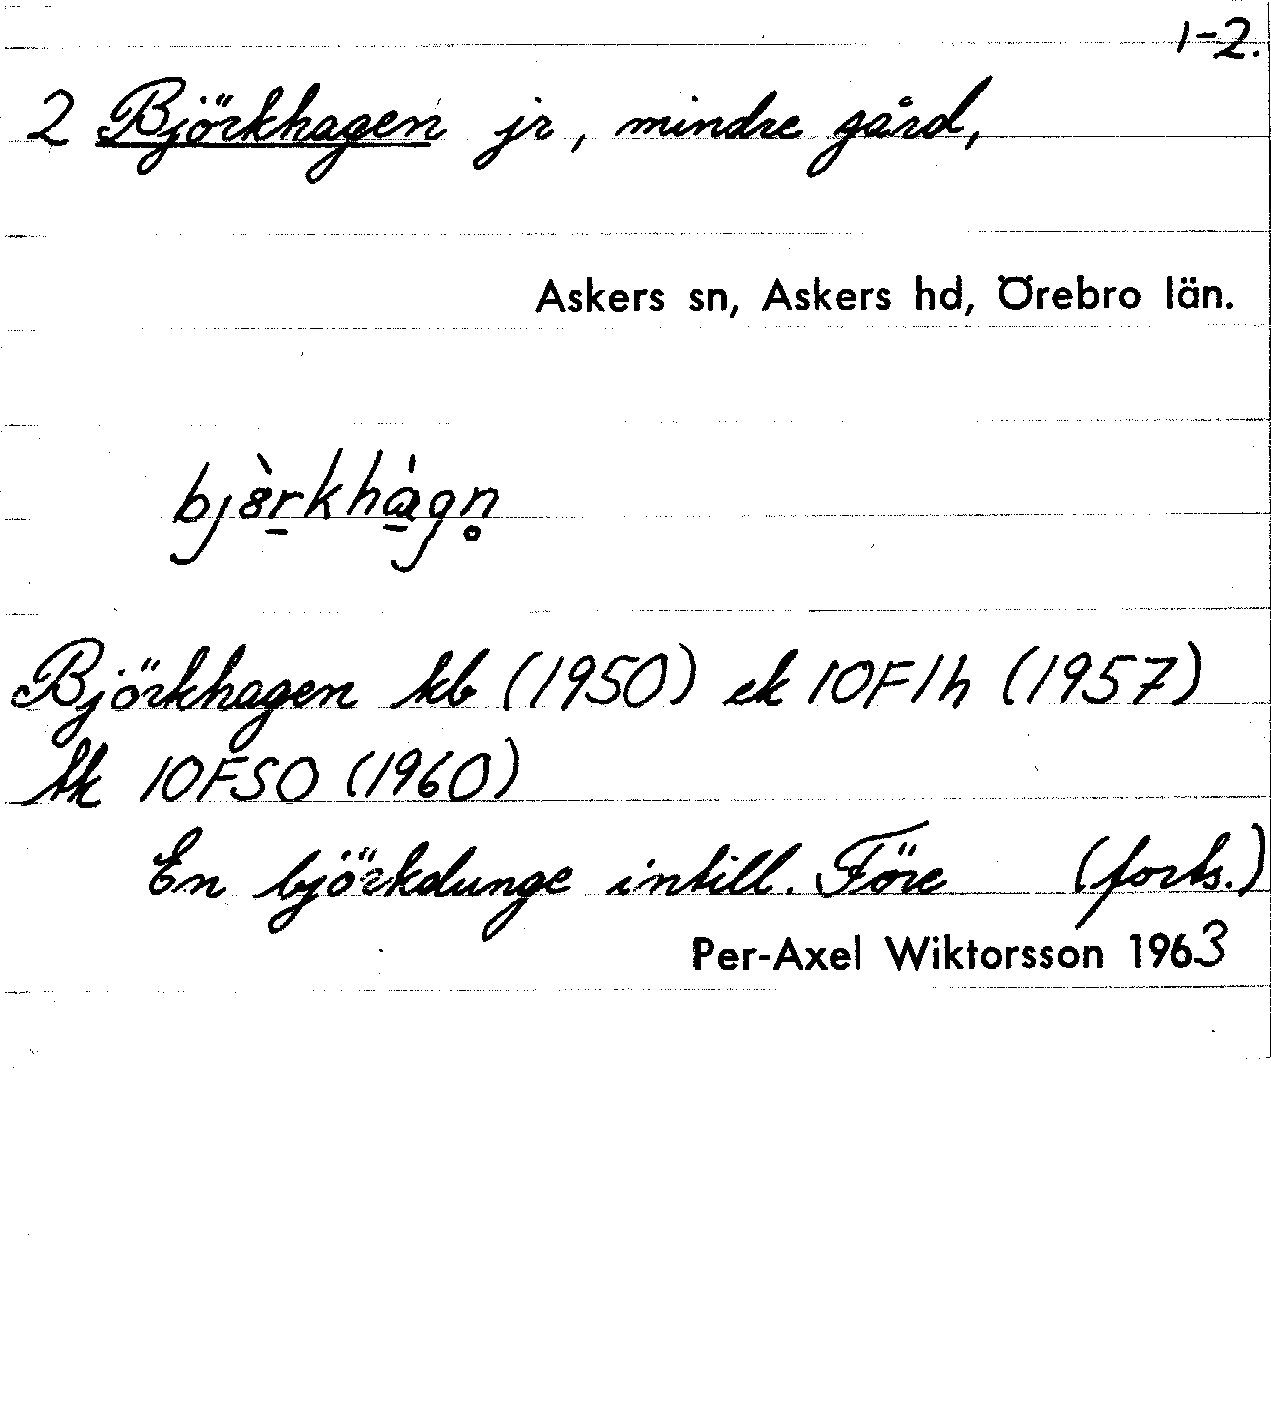 1-2.
2 Björkhagen jr, mindre gård,
Askers sn, Askers hd, Örebro län.
Björkhagen kb (1950) ek 10F1h (1957)
tk 10FSO (1960)
En björkdunge intill. Före (forts.)
Per-Axel Wiktorsson 1963